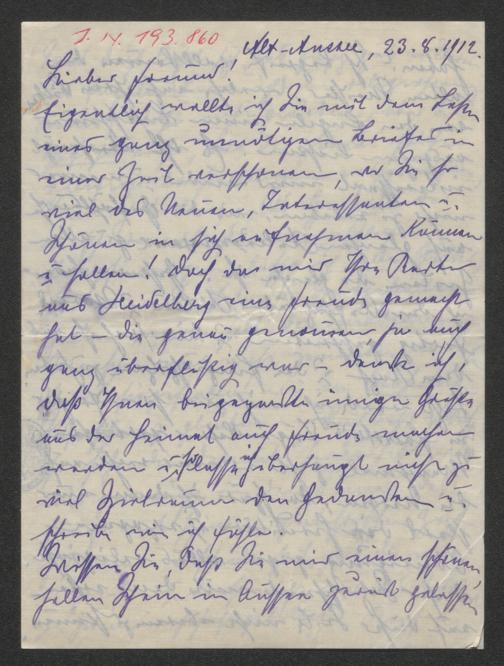 I. N. 193.860
Alt-Aussee, 23.8.1912.
Lieber Freund!
Eigentlich wollte ich Sie mit dem Lesen
eines ganz unnötigen Briefes in
einer Zeit verschonen, wo Sie so
viel des Neuen, Interessanten u.
Schönen in sich aufnehmen können
u sollen! Doch da mir Ihre Karte
aus Heidelberg eine Freude gemacht
hat – die genau genommen, ja auch
ganz überflüssig war – denke ich,
daß Ihnen innige Grüße
aus der Heimat auch Freude machen
werden u. überhaupt nicht zu
viel Spielraum den Gedanken u.
schreibe wie ich fühle.
Wissen Sie, daß Sie mir einen schönen
hellen Schein in Aussee zurück gelassen